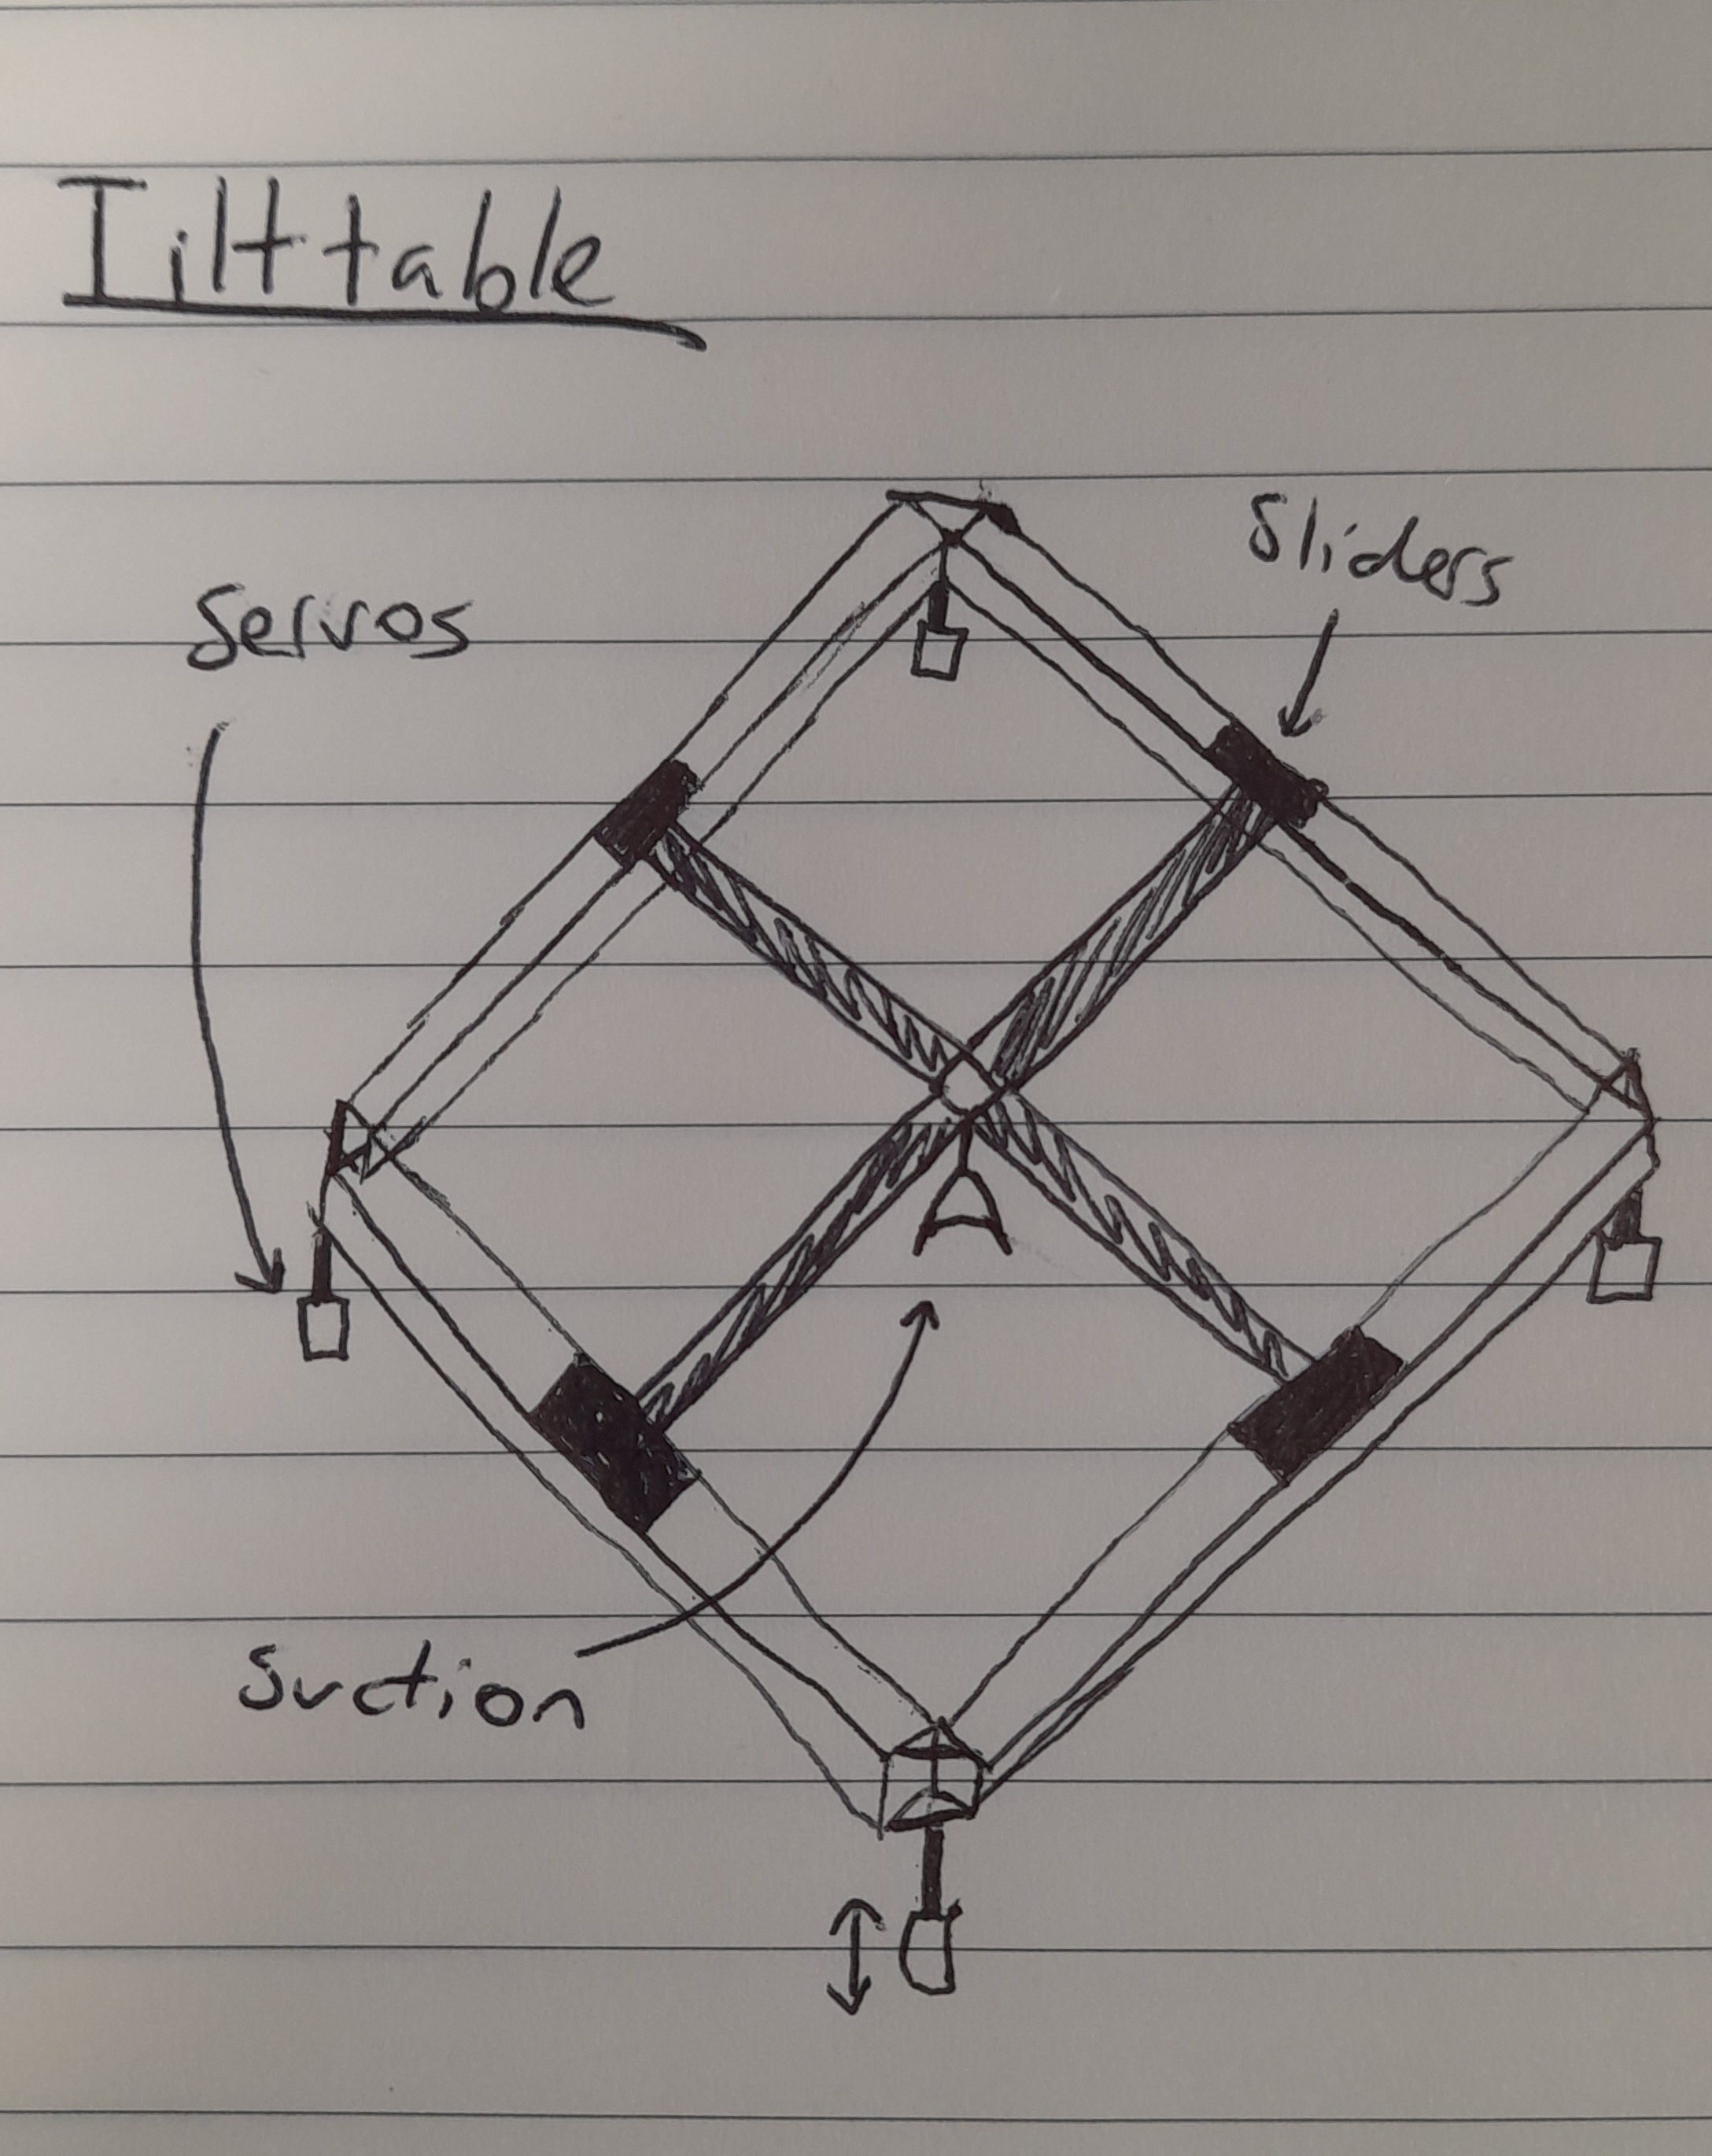 Tilt table
Sliders
Servos
Suction